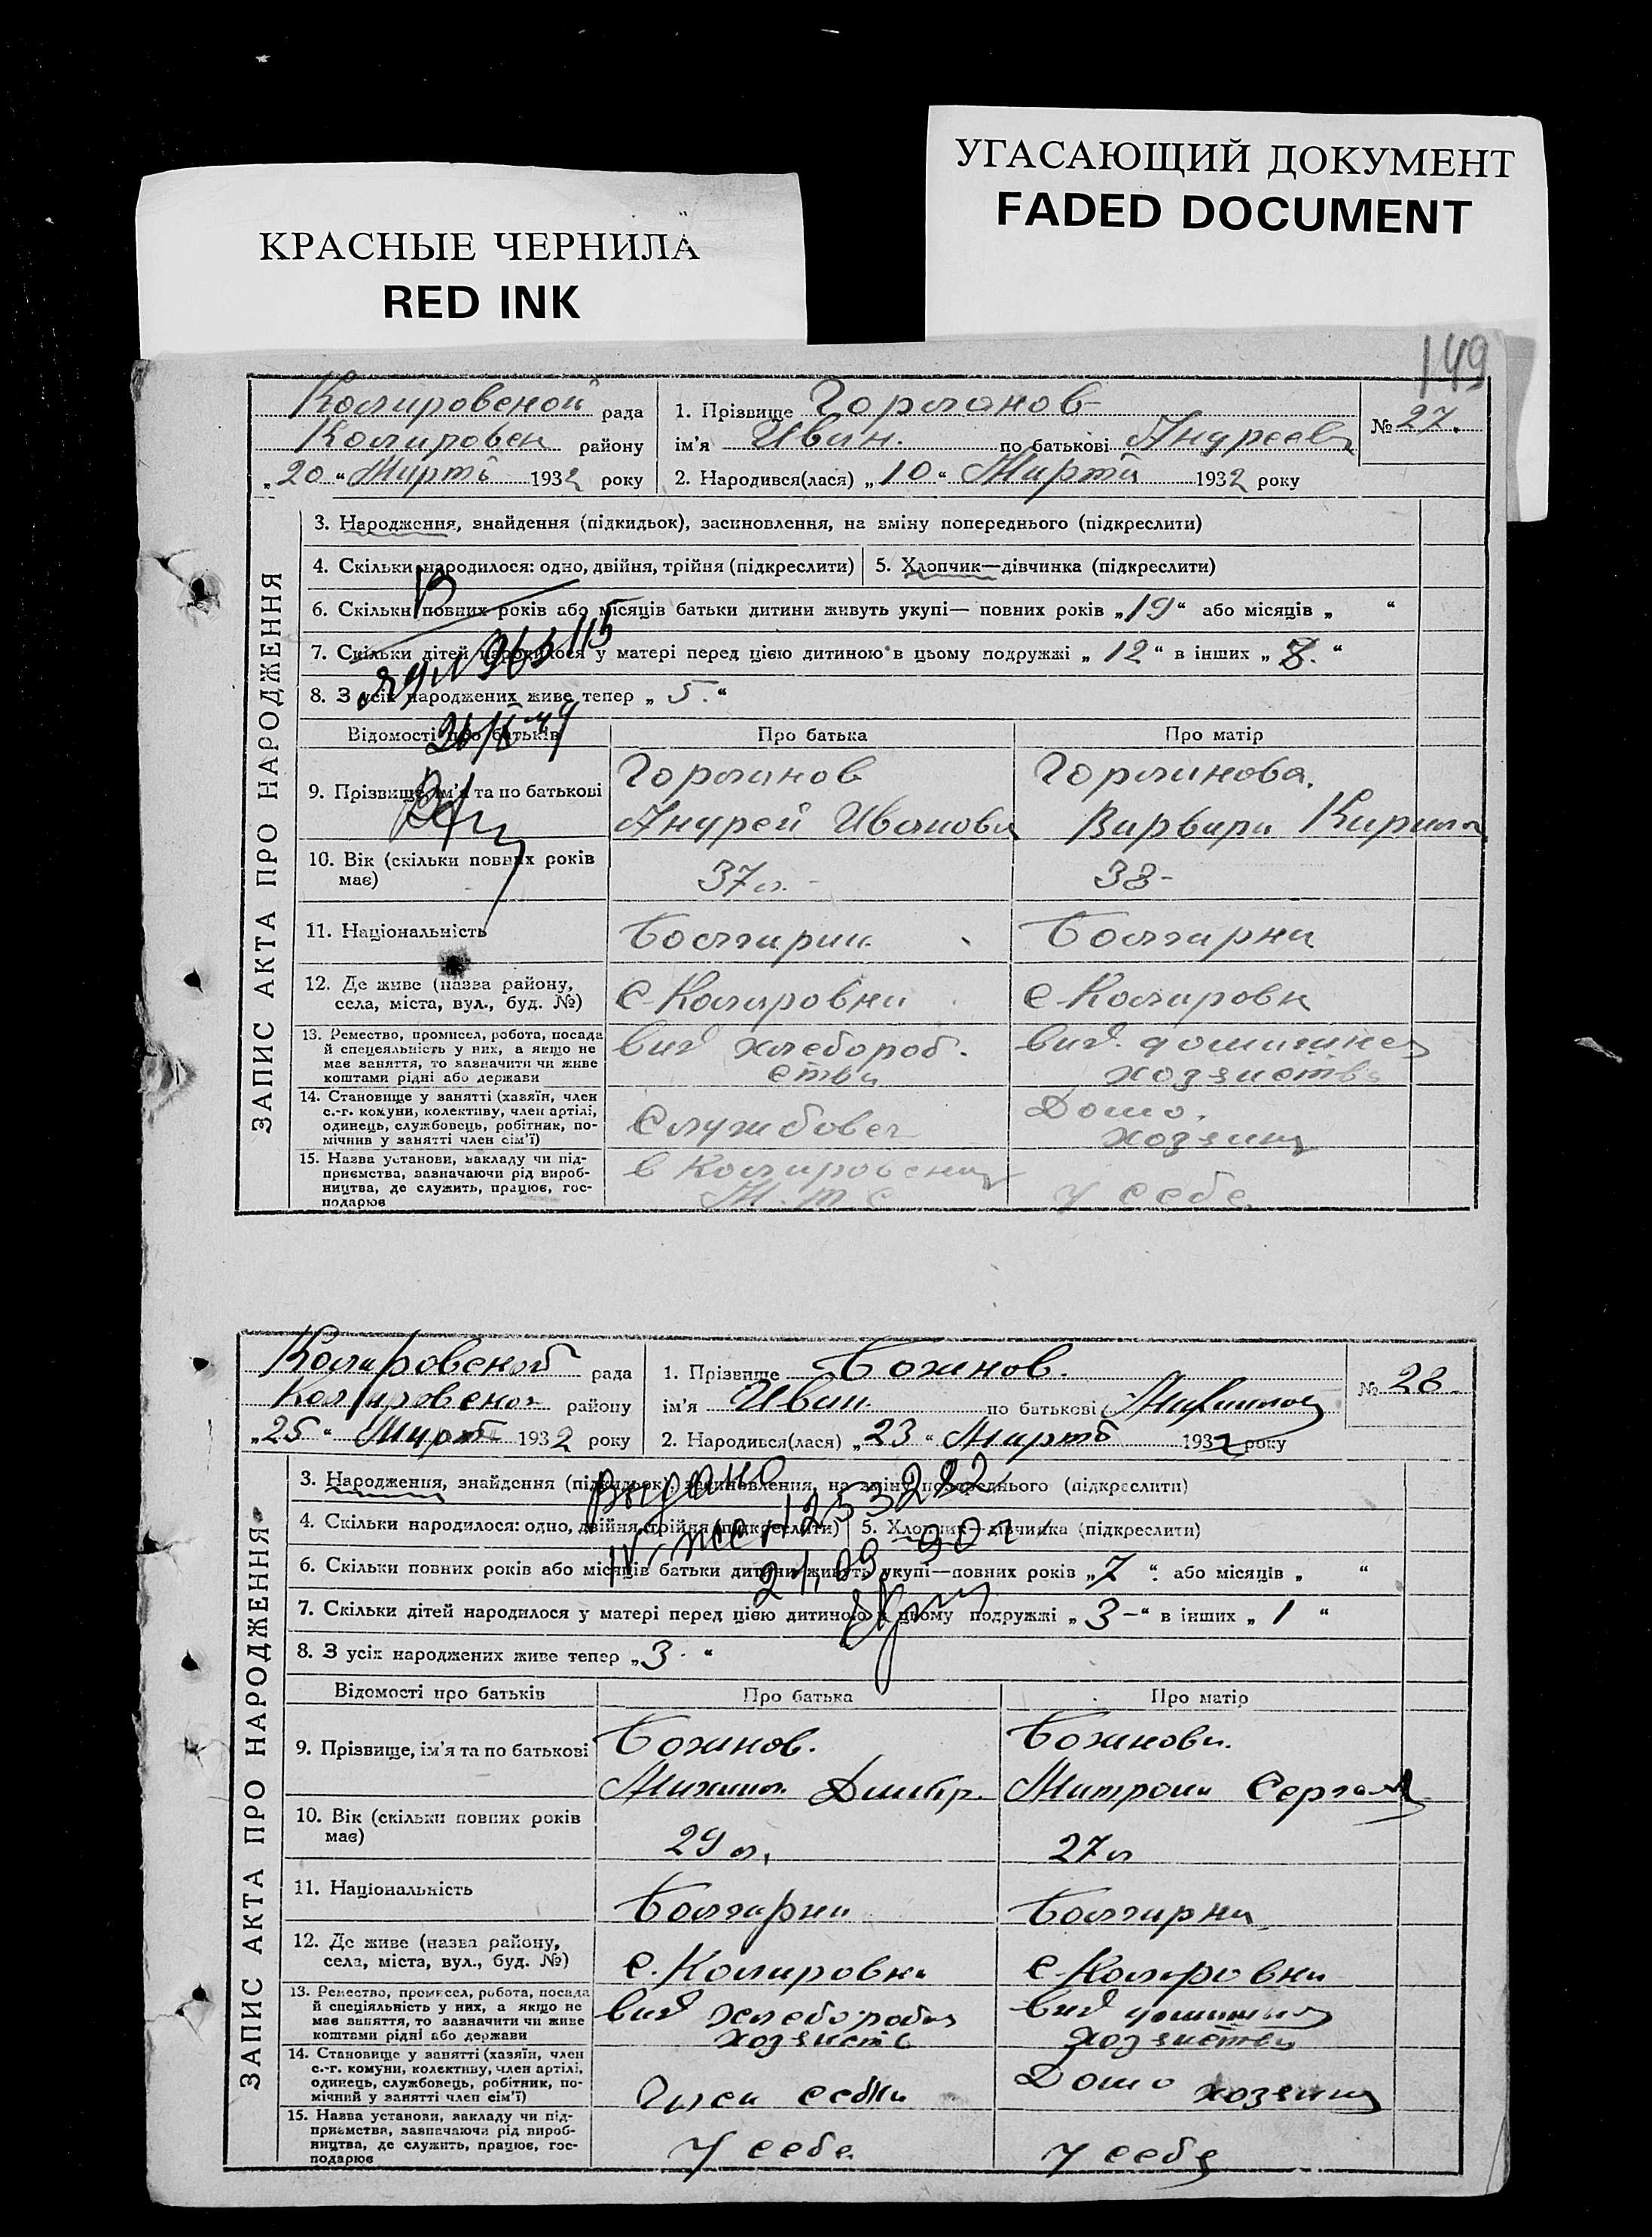 УГАСАЮЩИЙ ДОКУМЕНТ
FADED DOCUMENT
КРАСНЫЕ ЧЕРНИЛА
RED INK
149
ЗАПИС АКТА ПРО НАРОДЖЕННЯ
Коларовской рада
Коларовск району
„20“ Марта 1932 року
1. Прізвище Горланов
ім'я Иван. по батькові Андреев
№ 27.
2. Народився(лася) „10“ Марта 1932 року
3. Народження, знайдення (підкидьок), засиновлення, на зміну попереднього (підкреслити)
4. Скільки народилося: одно, двійня, трійня (підкреслити) 5. Хлопчик—дівчинка (підкреслити)
6. Скільки повних років або місяців батьки дитини живуть укупі— повних років „19“ або місяців „ “
7. Скільки дітей народилося у матері перед цією дитиною в цьому подружжі „12“ в інших „ “
8. З усіх народжених живе тепер „5.“
Відомості про батьків Про батька Про матір
9. Прізвище, ім'я та по батькові
Горланов
Андрей Иванови
Горланова.
Варвара Кирил
10. Вік (скільки повних років
має)
37л. 38-
11. Національність Болгарин Болгарка
12. Де живе (назва району,
села, міста, вул., буд. №)
с Коларовка с Коларовк
13. Ремество, промисел, робота, посада
й спецеяльність у них, а якщо не
має заняття, то зазначити чи живе
коштами рідні або держави
вид хлебороб.
ства
вид. домашнее
хозяиства
14. Становище у занятті (хазяїн, член
с.-г. комуни, колективу, член артілі,
одинець, службовець, робітник, по-
мічнив у занятті член сім'ї)
Службовец
Домо.
хозяика
15. Назва установи, закладу чи під-
приємства, зазначаючи рід вироб-
ництва, де служить, працює, гос-
подарює
в Коларовской
М. т с
у себе
ЗАПИС АКТА ПРО НАРОДЖЕННЯ
Коларовской рада
Коларовской району
„25“ Март 1932 року
1. Прізвище Божинов.
ім'я Иван по батькові Михаилов
№ 28.
2. Народився(лася) „23“ Март 1932 року
3. Народження, знайдення (підкидьок), засиновлення, на зміну попереднього (підкреслити)
4. Скільки народилося: одно, двійня, трійня (підкреслити) 5. Хлопчик—дівчинка (підкреслити)
6. Скільки повних років або місяців батьки дитини живуть укупі—повних років „7“ або місяців „ “
7. Скільки дітей народилося у матері перед цією дитиною в цьому подружжі „3-“ в інших „1“
8. З усіх народжених живе тепер „3.“
Відомості про батьків Про батька Про матір
9. Прізвище, ім'я та по батькові
Божинов.
Михаил Дмитр.
Божинова.
Митрона Серг
10. Вік (скільки повних років
має)
29 л. 27 л
11. Національність Болгарин Болгарка
12. Де живе (назва району,
села, міста, вул., буд. №)
с. Коларовка с. Коларовка
13. Ремество, промисел, робота, посада
й спеціяльність у них, а якщо не
має заняття, то зазначити чи живе
коштами рідні або держави
вид хлебороб
хозяиств
вид домашн
хозяиства
14. Становище у занятті (хазяїн, член
с.-г. комуни, колективу, член артілі,
одинець, службовець, робітник, по-
мічний у занятті член сім'ї)
Домо хозяика
15. Назва установи, закладу чи під-
приємства, зазначаючи рід вироб-
ництва, де служить, працює, гос-
подарює
у себе у себе